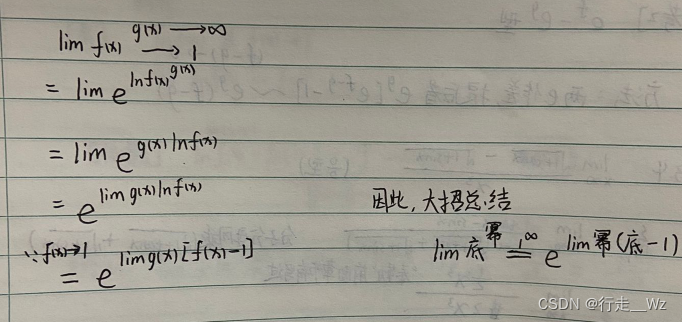 lim f(x)^{g(x)→∞} →1
= lim e^{ln f(x)^{g(x)}}
= lim e^{g(x) ln f(x)}
= e^{lim g(x) ln f(x)}
∵ f(x)→1
= e^{lim g(x)[f(x)-1]}
因此,大招总结
lim 底^幂 =^{1^∞} e^{lim 幂(底-1)}
CSDN @行走__Wz